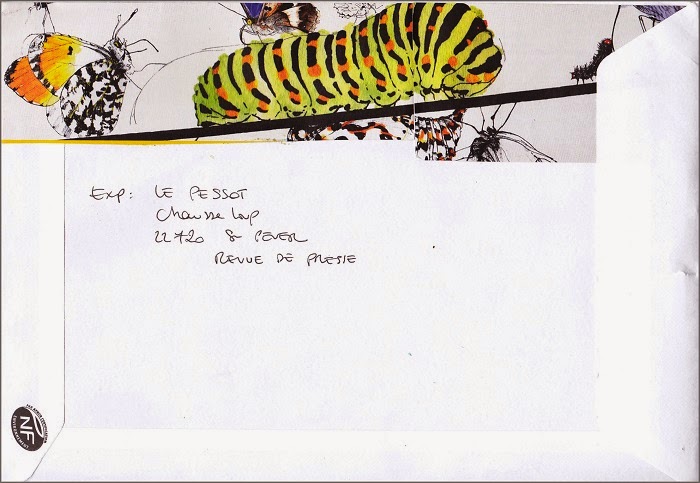 Exp: LE PESSOT
Chausse Loup
22720 St PEVER
REVUE DE PRESSE
NF